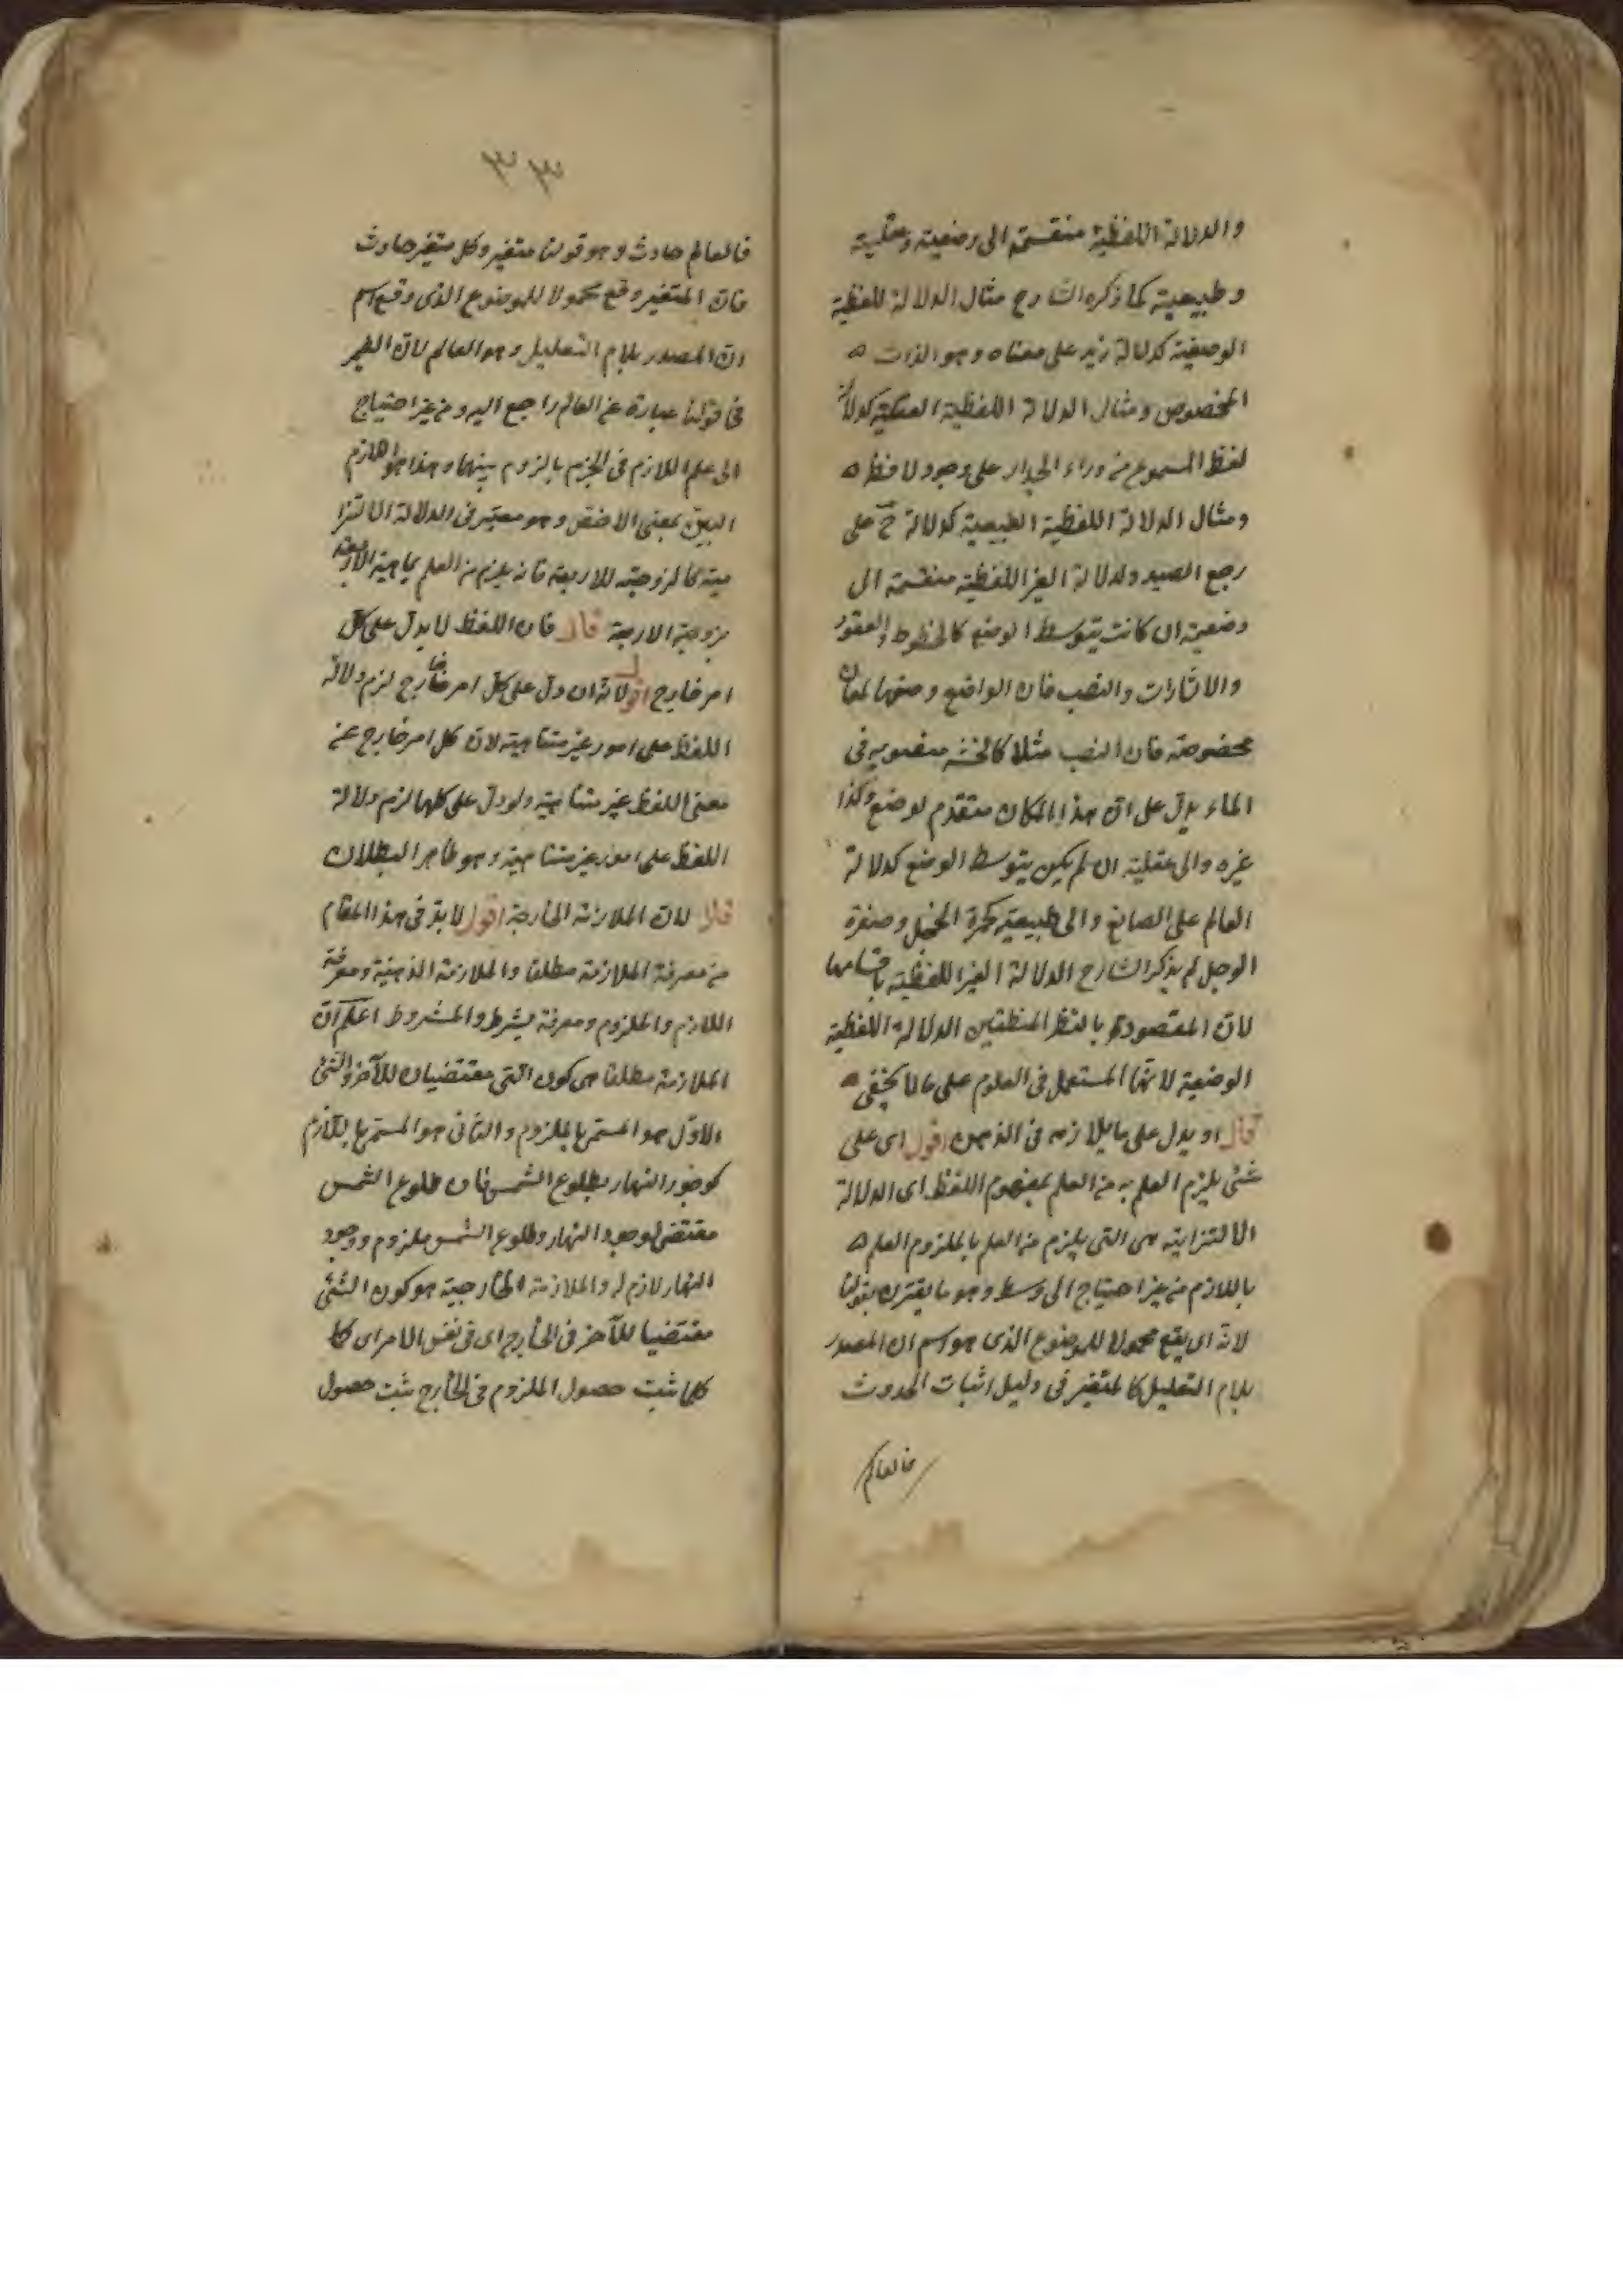 والدلالة اللفظية منقسمة الى وضعية وعقلية
وطبيعية كما ذكره الشارح مثال الدلالة اللفظية
الوضعية كدلالة زيد على معناه وهو الذات
المخصوص ومثال الدلالة اللفظية العقلية كدلالة
لفظ المسموع من وراء الجدار على وجود لافظ
ومثال الدلالة اللفظية الطبيعية كدلالة اح على
وجع الصدر والدلالة الغير اللفظية منقسمة الى
وضعية ان كانت بتوسط الوضع كالخطوط والعقود
والاشارات والنصب فان الواضع وضعها لمعان
مخصوصة فان النصب مثلا كالخشبة منصوبة فى
الماء يدل على ان هذا المكان متقدم لوضع وكذا
غيره والى عقلية ان لم يكن بتوسط الوضع كدلالة
العالم على الصانع والى طبيعية كحمرة الخجل وصفرة
الوجل لم يذكر الشارح الدلالة الغير اللفظية باقسامها
لان المقصود بالنظر المنطقيين الدلالة اللفظية
الوضعية لانها المستعمل فى العلوم على ما لا يخفى
قال او يدل على ما يلازمه فى الذهن اقول اى على
شئ يلزم العلم به من العلم بمفهوم اللفظ اى الدلالة
الالتزامية هى التى يلزم من العلم بالملزوم العلم
باللازم من غير احتياج الى وسط وهو ما يقترن بقولنا
لانه اى يقع محمولا للموضوع الذى هو اسم ان المصدر
بلام التعليل كالمتغير فى دليل اثبات الحدوث
فالعالم
٣٣
فالعالم حادث وهو قولنا متغير وكل متغير حادث
فان المتغير وقع محمولا للموضوع الذى وقع اسم
ان المصدر بلام التعليل وهو العالم لان الضمير
فى قولنا عبارة عن العالم راجع اليه ومن غير احتياج
الى علم اللازم فى الجزم بالزوم بينهما وهذا هو اللازم
البين بمعنى الاخص وهو معتبر فى الدلالة الالتزا
مية كالزوجية للاربعة فانه يلزم من العلم بماهية الاربعة
بزوجية الاربعة قال فان اللفظ لا يدل على كل
امر خارج اقول لانه ان دل على كل امر خارج لزم دلالة
اللفظ على امور غير متناهية لان كل امر خارج عن
معنى اللفظ غير متناهية ولو دل على كلها لزم دلالة
اللفظ على امور غير متناهية وهو ظاهر البطلان
قال لان الملازمة الخارجة اقول لا بد فى هذا المقام
من معرفة الملازمة مطلقا والملازمة الذهنية ومعرفة
اللازم والملزوم ومعرفة بشرط والمشروط اعلم ان
الملازمة مطلقا هى كون الشئ مقتضيان للآخر والشئ
الاول هو المسمى بالملزوم والثانى هو المسمى باللازم
كوجود النهار بطلوع الشمس فان طلوع الشمس
مقتضى لوجود النهار وطلوع الشمس ملزوم ووجود
النهار لازم له والملازمة الخارجية هو كون الشئ
مقتضيا للآخر فى الخارج اى فى نفس الامر اى كلما
كلما ثبت حصول الملزوم فى الخارج ثبت حصول